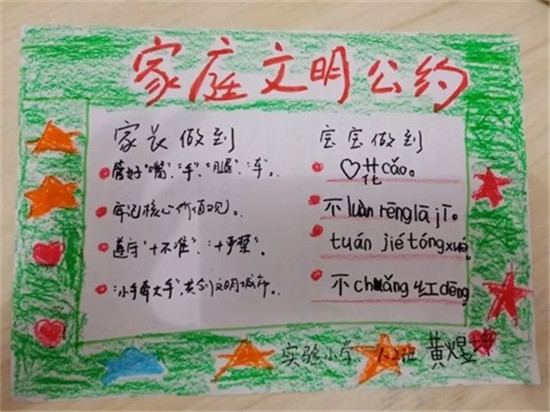 家庭文明公约
家长做到
管好“嘴”、“手”、“腿”、“车”。
牢记核心价值观。
遵守“十不准”、“十严禁”。
“小手牵大手”,共创文明城市。
宝宝做到
♡花cǎo。
不luàn rēng lā jī。
tuán jié tóng xué
不chuǎng 红dēng
实验小学 1.2班 黄煜坤